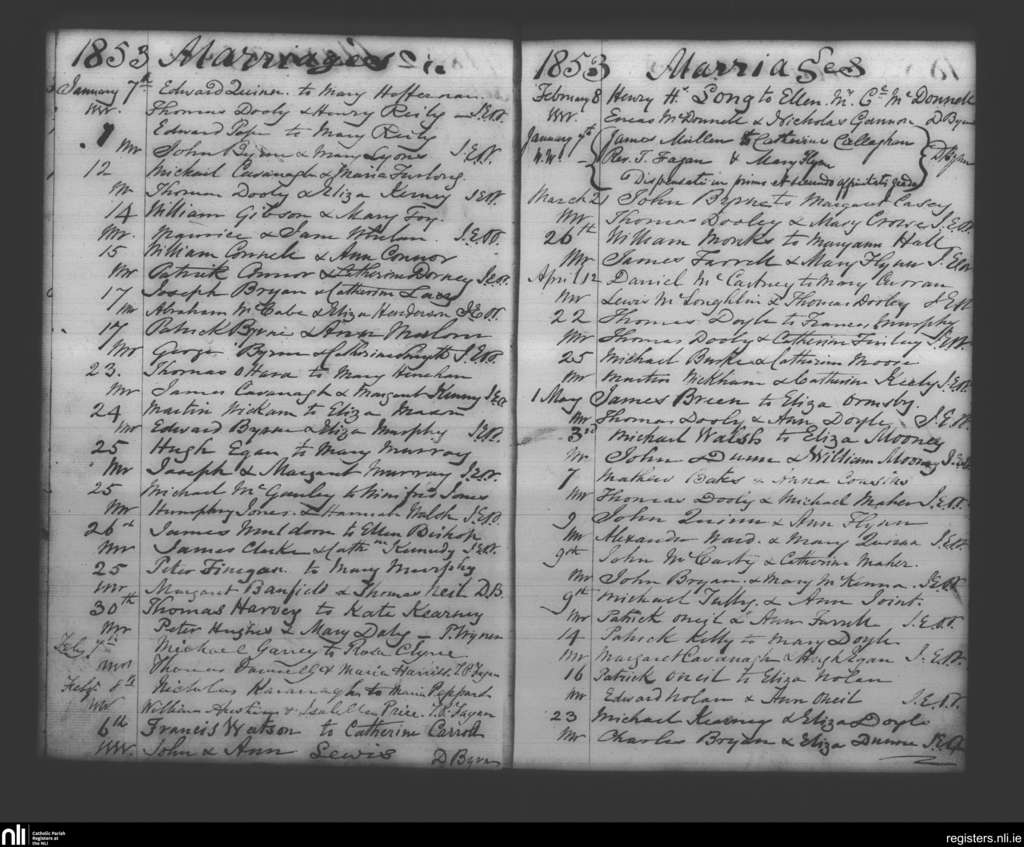 1853 Marriages
January 7th Edward Quinn to Mary Hoffernan
Thomas Dooly & Henry Reily
Edward Pope to Mary Reily
John Byrne & Mary Lyons
12 Michael Cavanagh & Maria Furlong
Thomas Dooly & Eliza Kerney
14 William Gibson & Mary Foy
Maurice & Jane Whelan
15 William Connell & Ann Connor
Patrick Connor & Catherine Dorney
17 Joseph Bryan & Catherine Lacy
Abraham McCabe & Eliza Henderson
17 Patrick Byrne & Ann
George Byrne & Catherine Smyth
23. Thomas OHara to Mary
James Cavanagh & Margaret Kenny
24 Martin Wickam to Eliza Mason
Edward Byrne & Eliza Murphy
25 Hugh Egan to Mary Murray
Joseph & Margaret Murray
25 Michael McGauley to Winifred Jones
Humphry Jones & Hannah Walsh
26 James Muldoon to Ellen Bishop
James Clarke & Cathne Kennedy
25 Peter Finegan to Mary Murphy
Margaret Banfield & Thomas Neil D.B.
30th Thomas Harvey to Kate Kearney
Mr Peter Hughes & Mary Daly
Feby 7th Michael Garvey to Rose Clyne
Thomas & Maria
Feby 8th Nicholas Kavanagh to Maria Peppard
William Austin & Price
6th Francis Watson to Catherine Carroll
John & Ann Lewis D Byrne
1853 Marriages
February 8 Henry Hy Long to Ellen McDonnell
Eneas McDonnell & Nicholas Gannon D Byrne
January 7th James Mullen to Catherine Callaghan
Rev. T. Fagan & Mary Flyn D Byrne
Dispensati in primo et secundo affinitatis gradu
March 2 John Byrne to Margaret Casey
Mr Thomas Dooley & Mary Crosse
26th William Monks to Maryann Hall
Mr James Farrell & Mary Flynn
April 12 Daniel McCartney to Mary Curran
Mr Lewis McLoughlin & Thomas Dooley
22 Thomas Doyle to Frances Murphy
Mr Thomas Dooly & Catherine Finley
25 Michael Burke & Catherine Moore
Mr Martin Wickham & Catherine Keely
1 May James Breen to Eliza Ormsby.
Mr Thomas Dooly & Ann Doyle
3rd Michael Walsh to Eliza Mooney
Mr John Dunne & William Mooney
7 Mathew Oates & Anna Cousins
Mr Thomas Dooly & Michael Maher
9 John Quinn & Ann Flynn
Mr Alexander Ward & Mary
9th John McCarty & Catherine Maher.
Mr John Bryan & Mary McKenna
9th Michael Tully & Ann Joint.
Mr Patrick Oneil & Ann Farrell
14 Patrick Kelly to Mary Doyle
Mr Margaret Cavanagh & Hugh Egan
16 Patrick Oneil to Eliza Nolan
Mr Edward Nolan & Ann Oneil
23 Michael Kearney & Eliza Doyle
Mr Charles Bryan & Eliza Dunne
nli Catholic Parish
Registers at
the NLI
registers.nli.ie